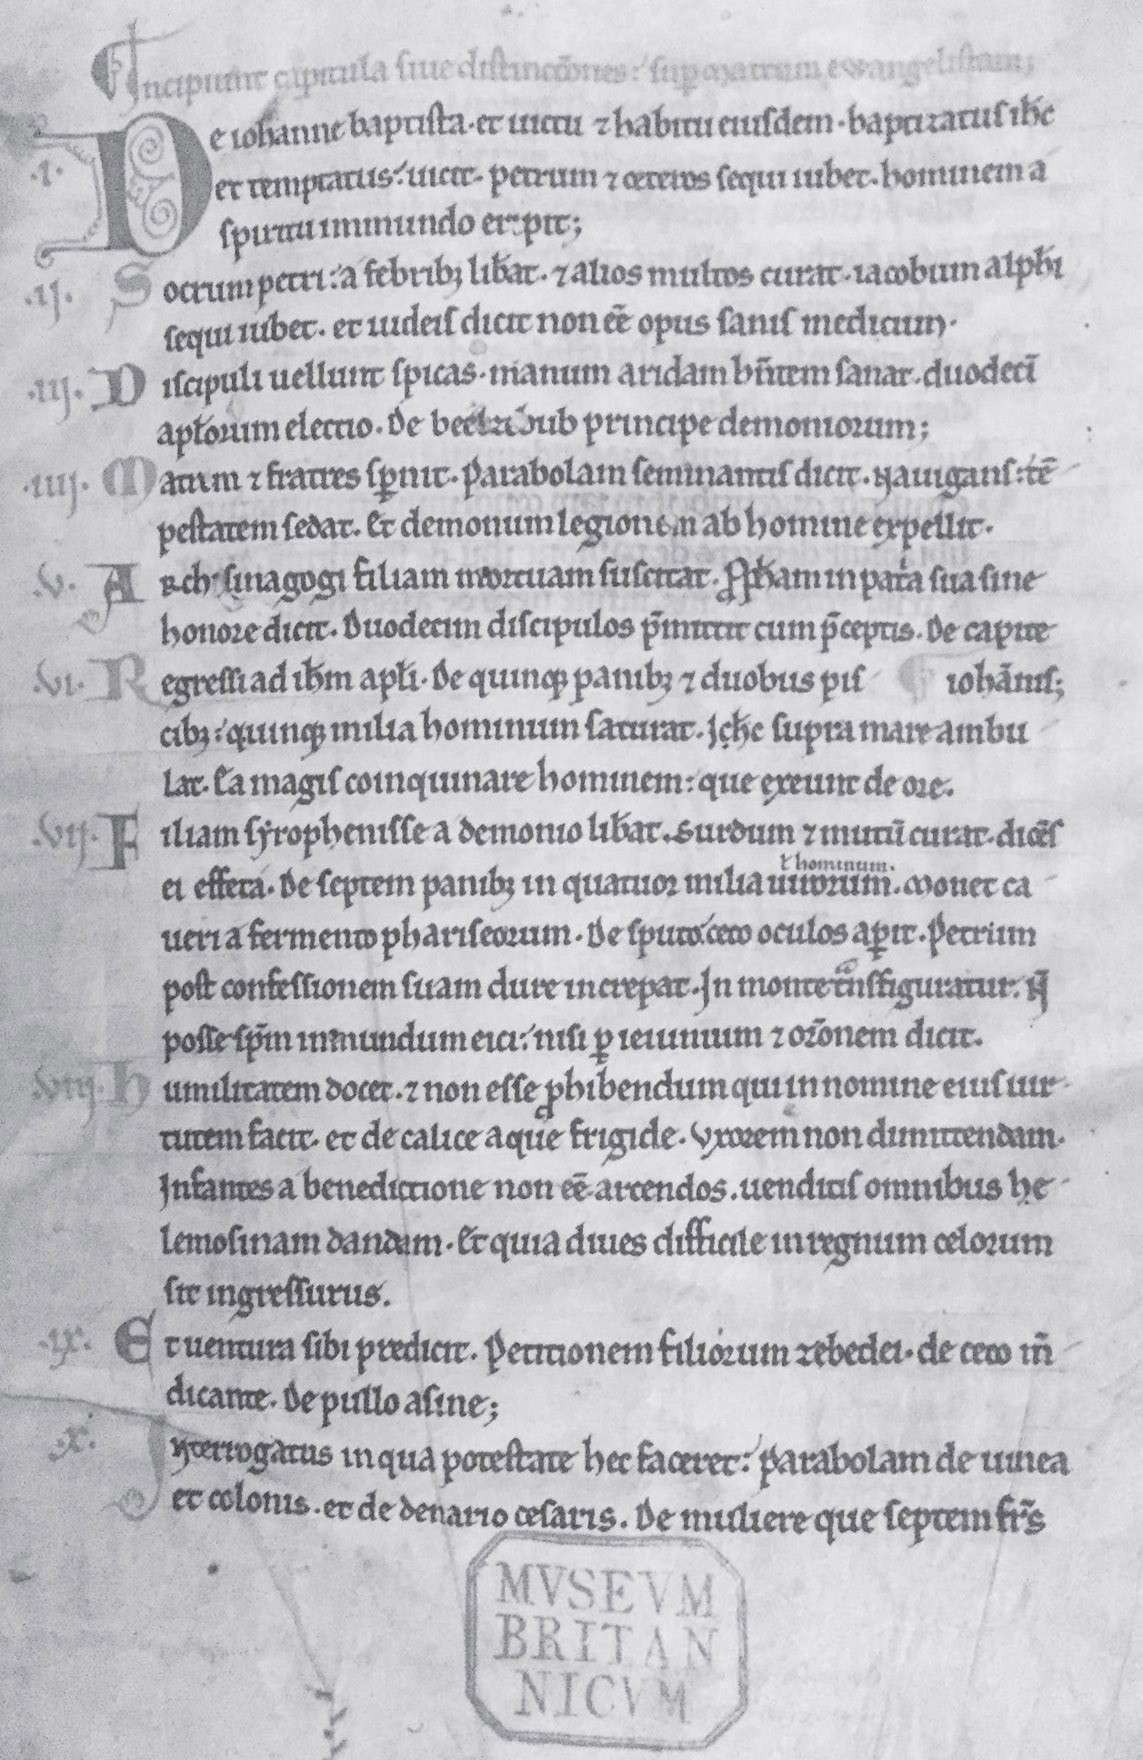 Incipiunt capitula siue distinct̄ones: suꝑ Marcum ewangelistam;
.i. De iohanne baptista. et uictu ⁊ habitu eiusdem. baptizatus ih̄c
et temptatus: uicit. petrum ⁊ ceteros sequi iubet. hominem a
spiritu immundo eripit;
.ij. Socrum petri: a febribꝫ lib̄at. ⁊ alios multos curat. iacobum alph̄i
sequi iubet. et iudeis dicit non eē opus sanis medicum.
.iij. Discipuli uellunt spicas. manum aridam hn̄tem sanat. duodecī
apl̄orum electio. De beelzebub principe demoniorum;
.iiij. Matrem ⁊ fratres sp̄nit. Parabolam seminantis dicit. Nauigans: tē
pestatem sedat. Et demonum legionem ab homine expellit.
.v. Archisinagogi filiam mortuam suscitat. Ꝓph̄am in pat̄a sua sine
honore dicit. Duodecim discipulos p̄mittit cum p̄ceptis. De capite
.vi. Regressi ad ih̄m apl̄i. De quinqꝫ panibꝫ ⁊ duobus pis iohānis;
cibꝫ: quinqꝫ milia hominum saturat. Ih̄c supra mare ambu
lat. Ea magis coinquinare hominem: que exeunt de ore.
.vij. Filiam syrophenisse a demonio lib̄at. Surdum ⁊ mutū curat. dicēs
ei effeta. De septem panibꝫ in quatuor milia uirorum. Monet ca
ł hominum.
ueri a fermento phariseorum. De sputo: ceco oculos aꝑit. Petrum
post confessionem suam dure increpat. In monte tᵃnsfiguratur. N̄
posse sp̄m inmundum eici: nisi ꝑ ieiunium ⁊ or̄onem dicit.
.viij. Humilitatem docet. ⁊ non esse ꝓhibendum qui in nomine eius uir
tutem facit. et de calice aque frigide. Vxorem non dimittendam.
Infantes a benedictione non eē arcendos. uenditis omnibus he
lemosinam dandam. Et quia diues difficile in regnum celorum
sit ingressurus.
.ix. Et uentura sibi predicit. Petitionem filiorum zebedei. de ceco m̄
dicante. De pullo asine;
.x. Interrogatus in qua potestate hec faceret: parabolam de uinea
et colonis. et de denario cesaris. De muliere que septem fr̄s
MVSEVM
BRITAN
NICVM